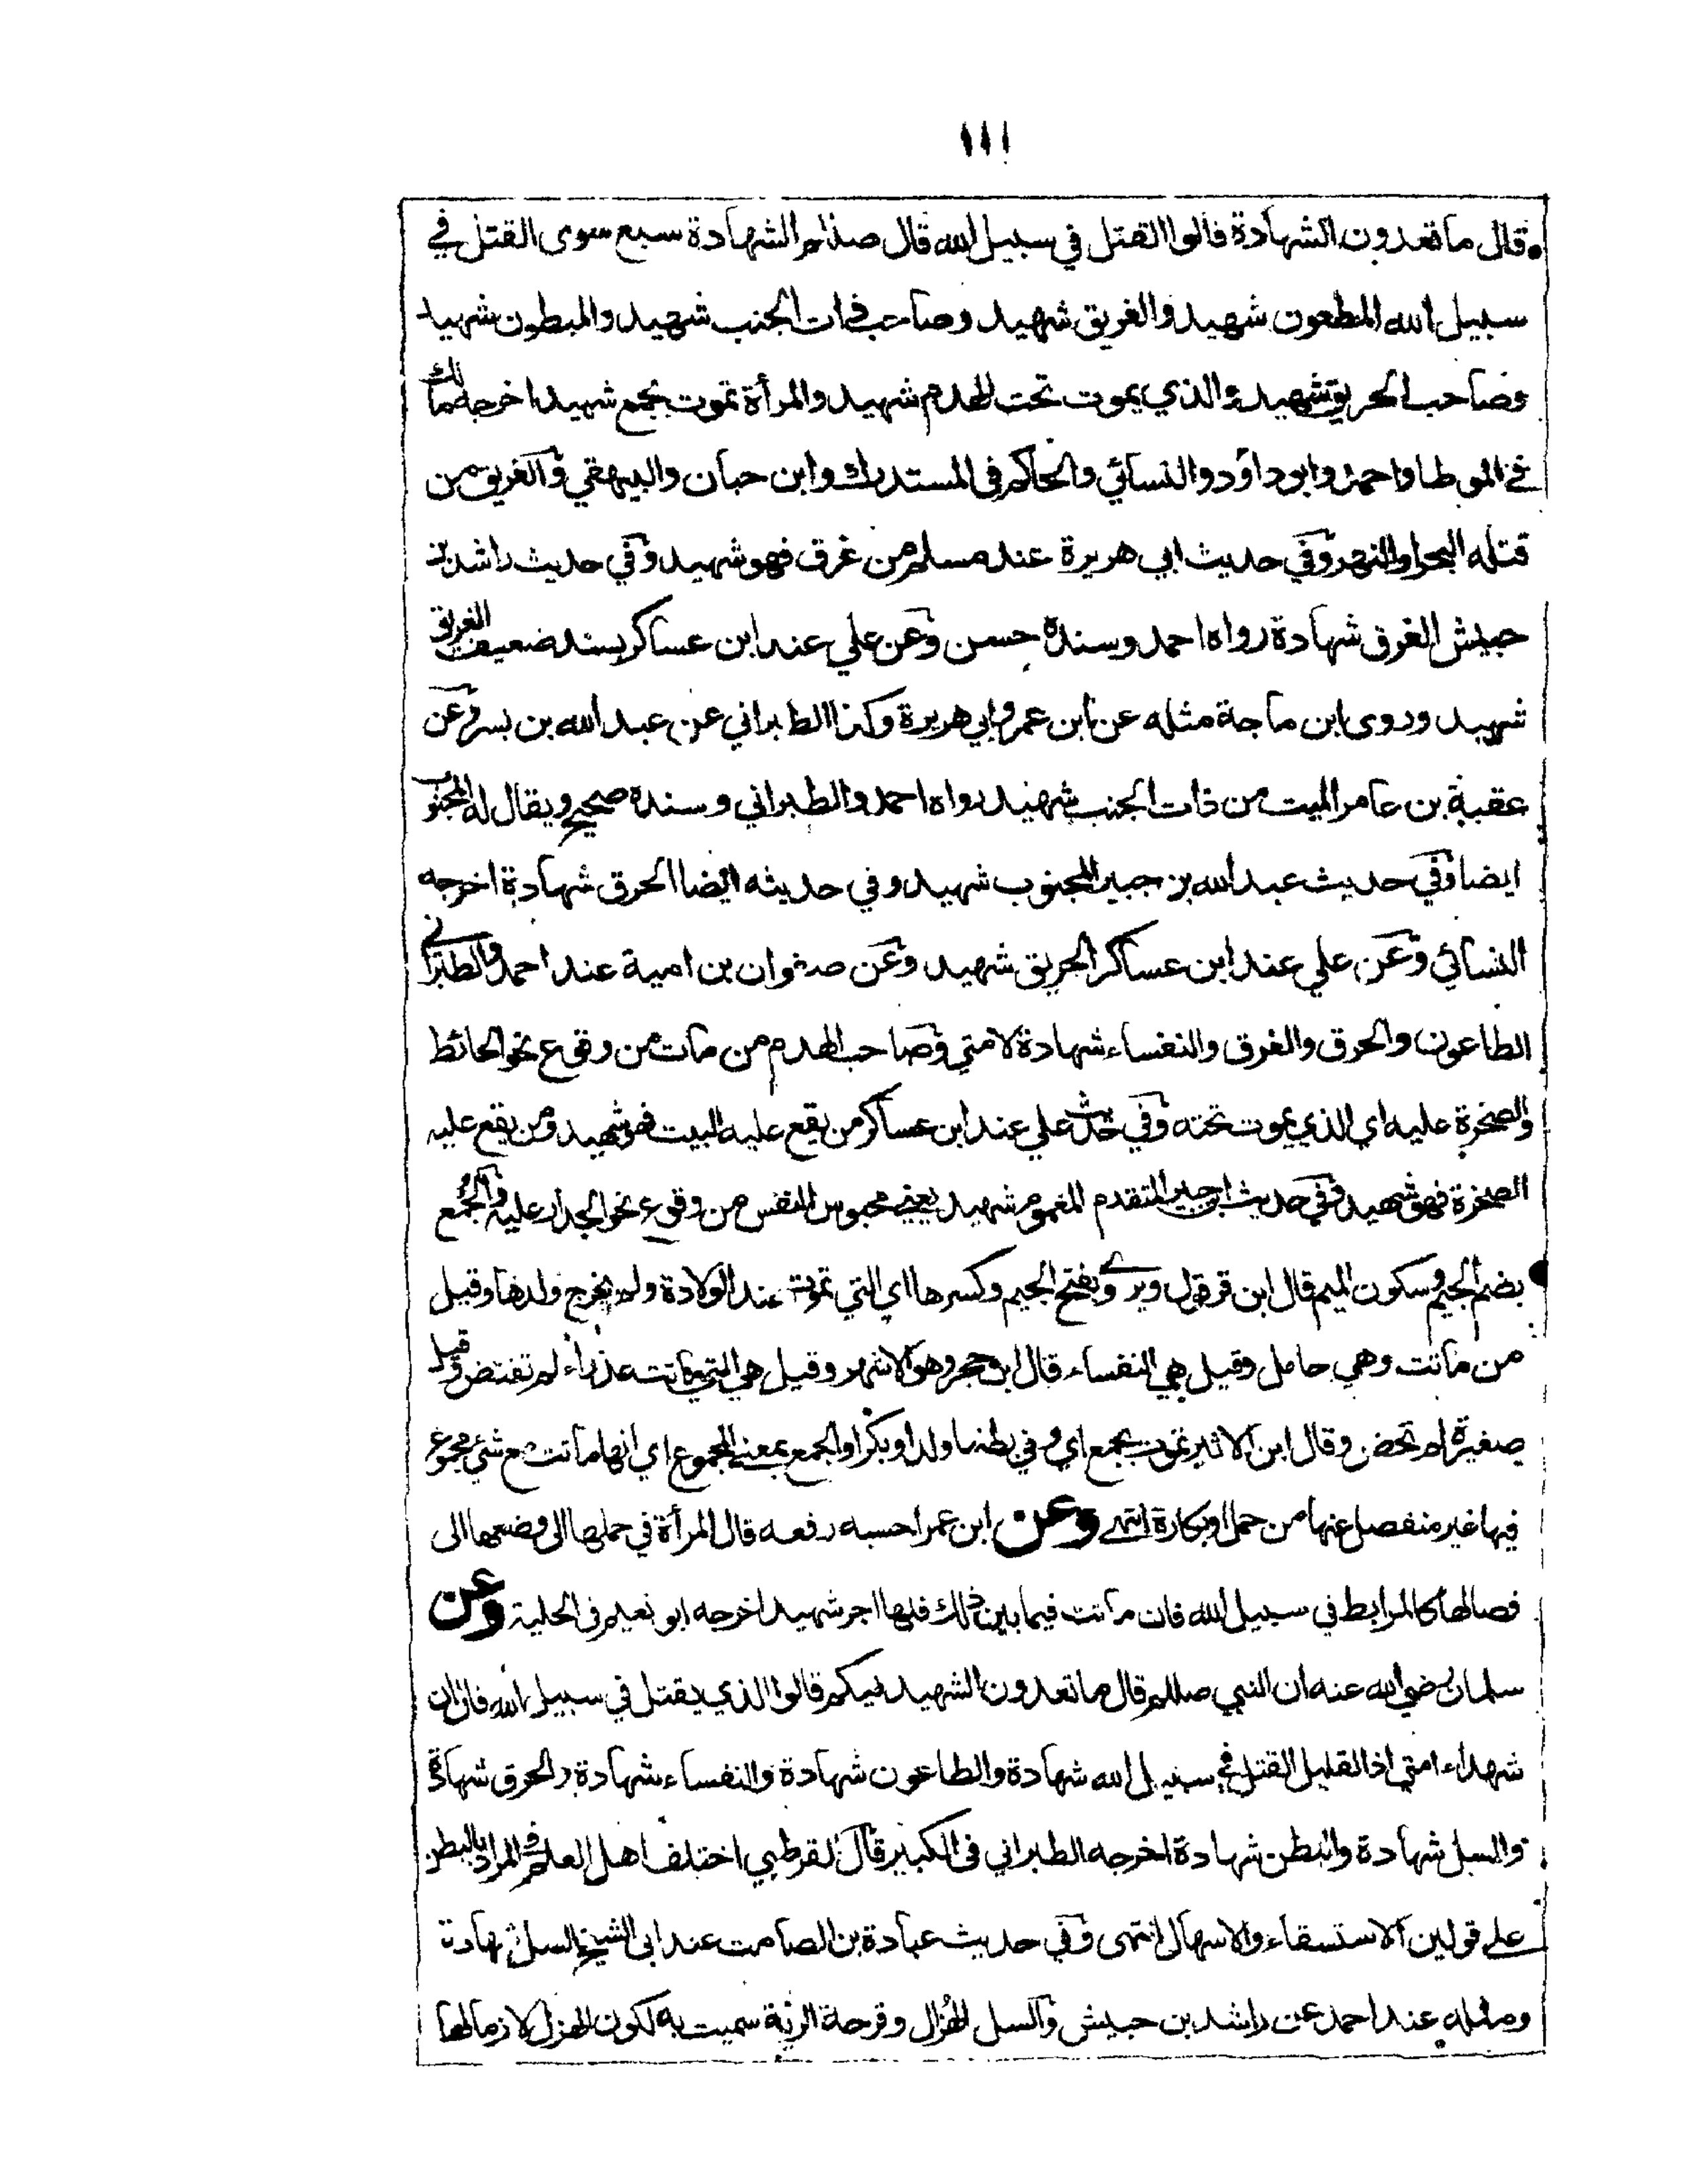 ١١١
قال ما تعدون الشهادة قالوا القتل في سبيل الله قال صللم الشهادة سبع سوى القتل في
سبيل الله المطعون شهيد والغريق شهيد وصاحب ذات الجنب شهيد والمبطون شهيد
وصاحب الحريق شهيد والذي يموت تحت الهدم شهيد والمرأة تموت بجمع شهيد اخرجه مالك
في الموطا واحمد وابوداؤد والنسائي والحاكم في المستدرك وابن حبان والبيهقي والغريق من
قتله البحر او النهر وفي حديث ابي هريرة عند مسلم من غرق فهو شهيد وفي حديث راشد بن
حبيش الغرق شهادة رواه احمد وسنده حسن وعن علي عند ابن عساكر بسند ضعيف الغريق
شهيد وروى ابن ماجة مثله عن ابن عمر وابي هريرة وكذا الطبراني عن عبد الله بن بسر وعن
عقبة بن عامر الميت من ذات الجنب شهيد رواه احمد والطبراني وسنده صحيح ويقال له المجنوب
ايضا وفي حديث عبد الله بن جبير المجنوب شهيد وفي حديثه ايضا الحرق شهادة اخرجه
النسائي وعن علي عند ابن عساكر الحريق شهيد وعن صفوان بن امية عند احمد والطبراني
الطاعون والحرق والغرق والنفساء شهادة لامتي وصاحب الهدم من مات من وقوع نحو الحائط
والصخرة عليه اي الذي يموت تحته وفي حديث علي عند ابن عساكر من يقع عليه البيت فهو شهيد ومن يقع عليه
الصخرة فهو شهيد وفي حديث ابن جبير المتقدم المغموم شهيد يعني محبوس النفس من وقوع نحو الجدار عليه والجُمع
بضم الجيم وسكون الميم قال ابن قرقول ويروى بفتح الجيم وكسرها اي التي تموت عند الولادة ولم يخرج ولدها وقيل
من ماتت وهي حامل وقيل هي النفساء قال ابن حجر وهو الاشهر وقيل هي التي ماتت عذراء لم تفتض وقيل
صغيرة لم تحض وقال ابن الاثير تموت بجمع اي وفي بطنها ولد او بكرا والجمع بمعنى المجموع اي انها ماتت مع شئ مجموع
فيها غير منفصل عنها من حمل او بكارة انتهى وعن ابن عمر احسبه رفعه قال المرأة في حملها الى وضعها الى
فصالها كالمرابط في سبيل الله فان ماتت فيما بين ذلك فلها اجر شهيد اخرجه ابو نعيم في الحلية وعن
سلمان رضي الله عنه ان النبي صللم قال ما تعدون الشهيد فيكم قالوا الذي يقتل في سبيل الله قال ان
شهداء امتي اذا لقليل القتل في سبيل الله شهادة والطاعون شهادة والنفساء شهادة والحرق شهادة
والسل شهادة والبطن شهادة اخرجه الطبراني في الكبير قال القرطبي اختلف اهل العلم في المراد بالبطن
على قولين الاستسقاء والاسهال انتهى وفي حديث عبادة بن الصامت عند ابى الشيخ السل شهادة
ومثله عند احمد عن راشد بن حبيش والسل الهُزال وقرحة الرئة سميت به لكون الهزل لازما لها